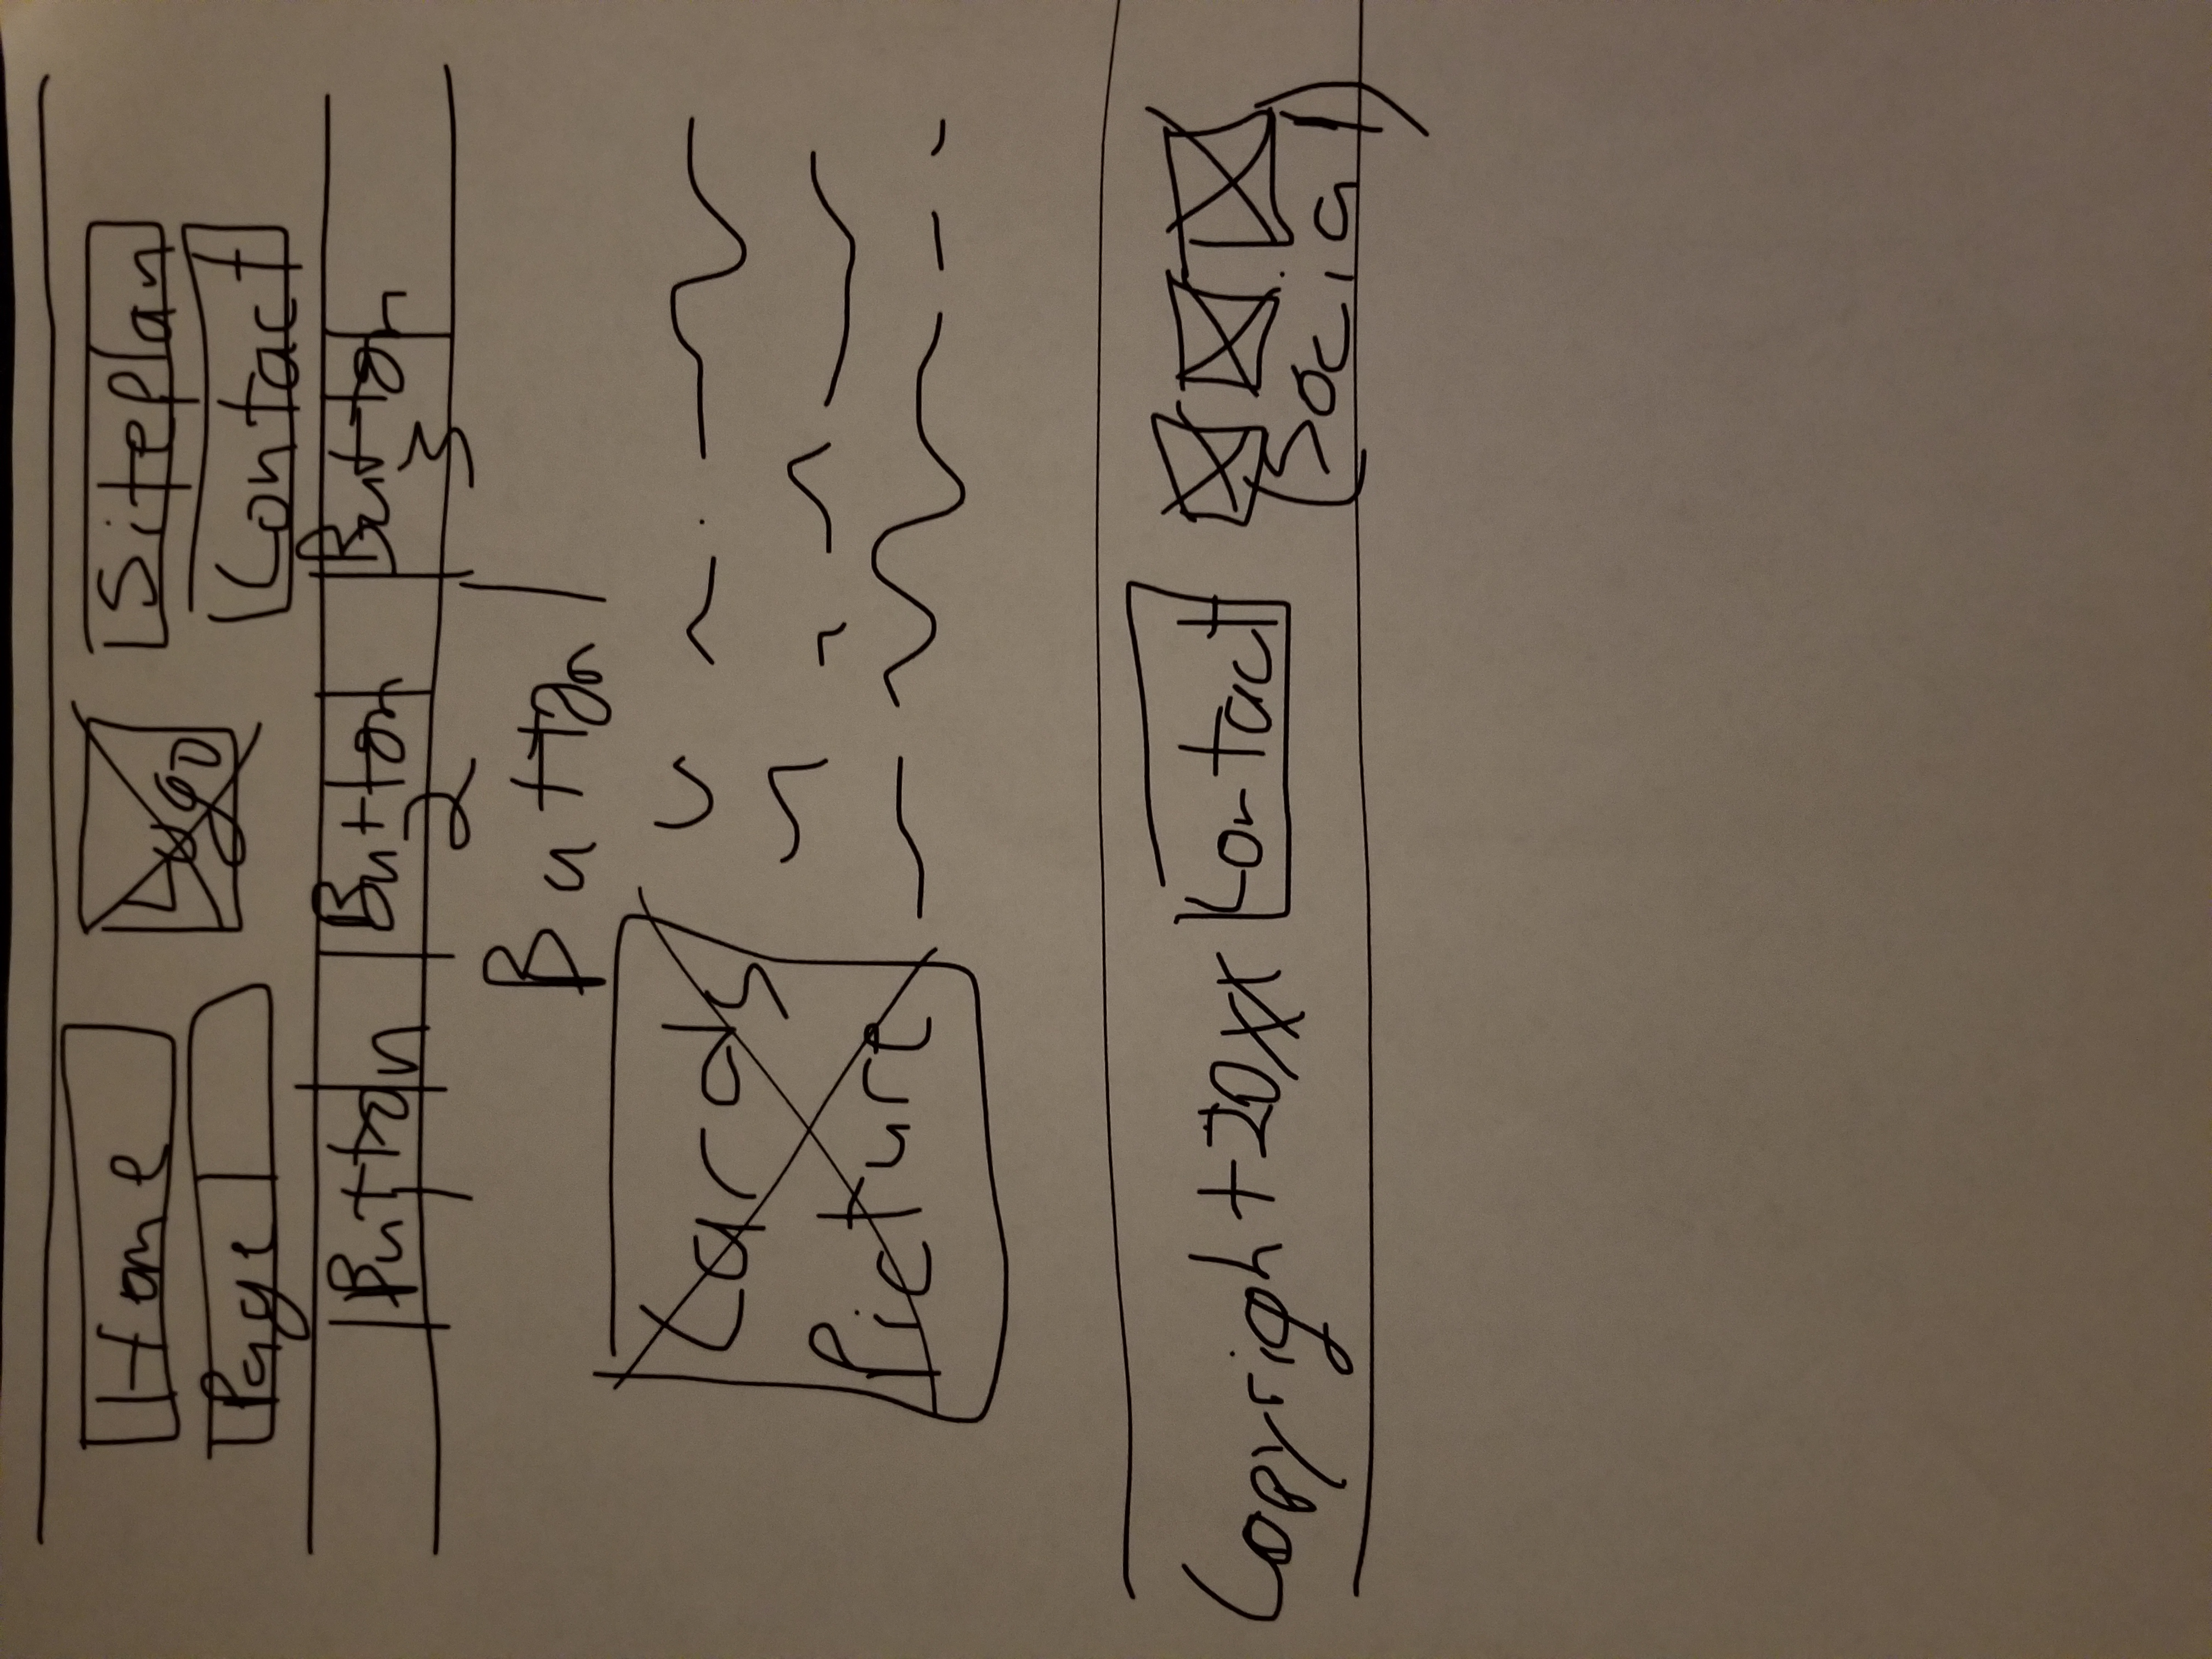 Home
Logo
Siteplan
Page
Contact
Button 1
Button 2
Button 3
Button 1
Cards
Picture
Copyright 20xx
Contact
(Social)